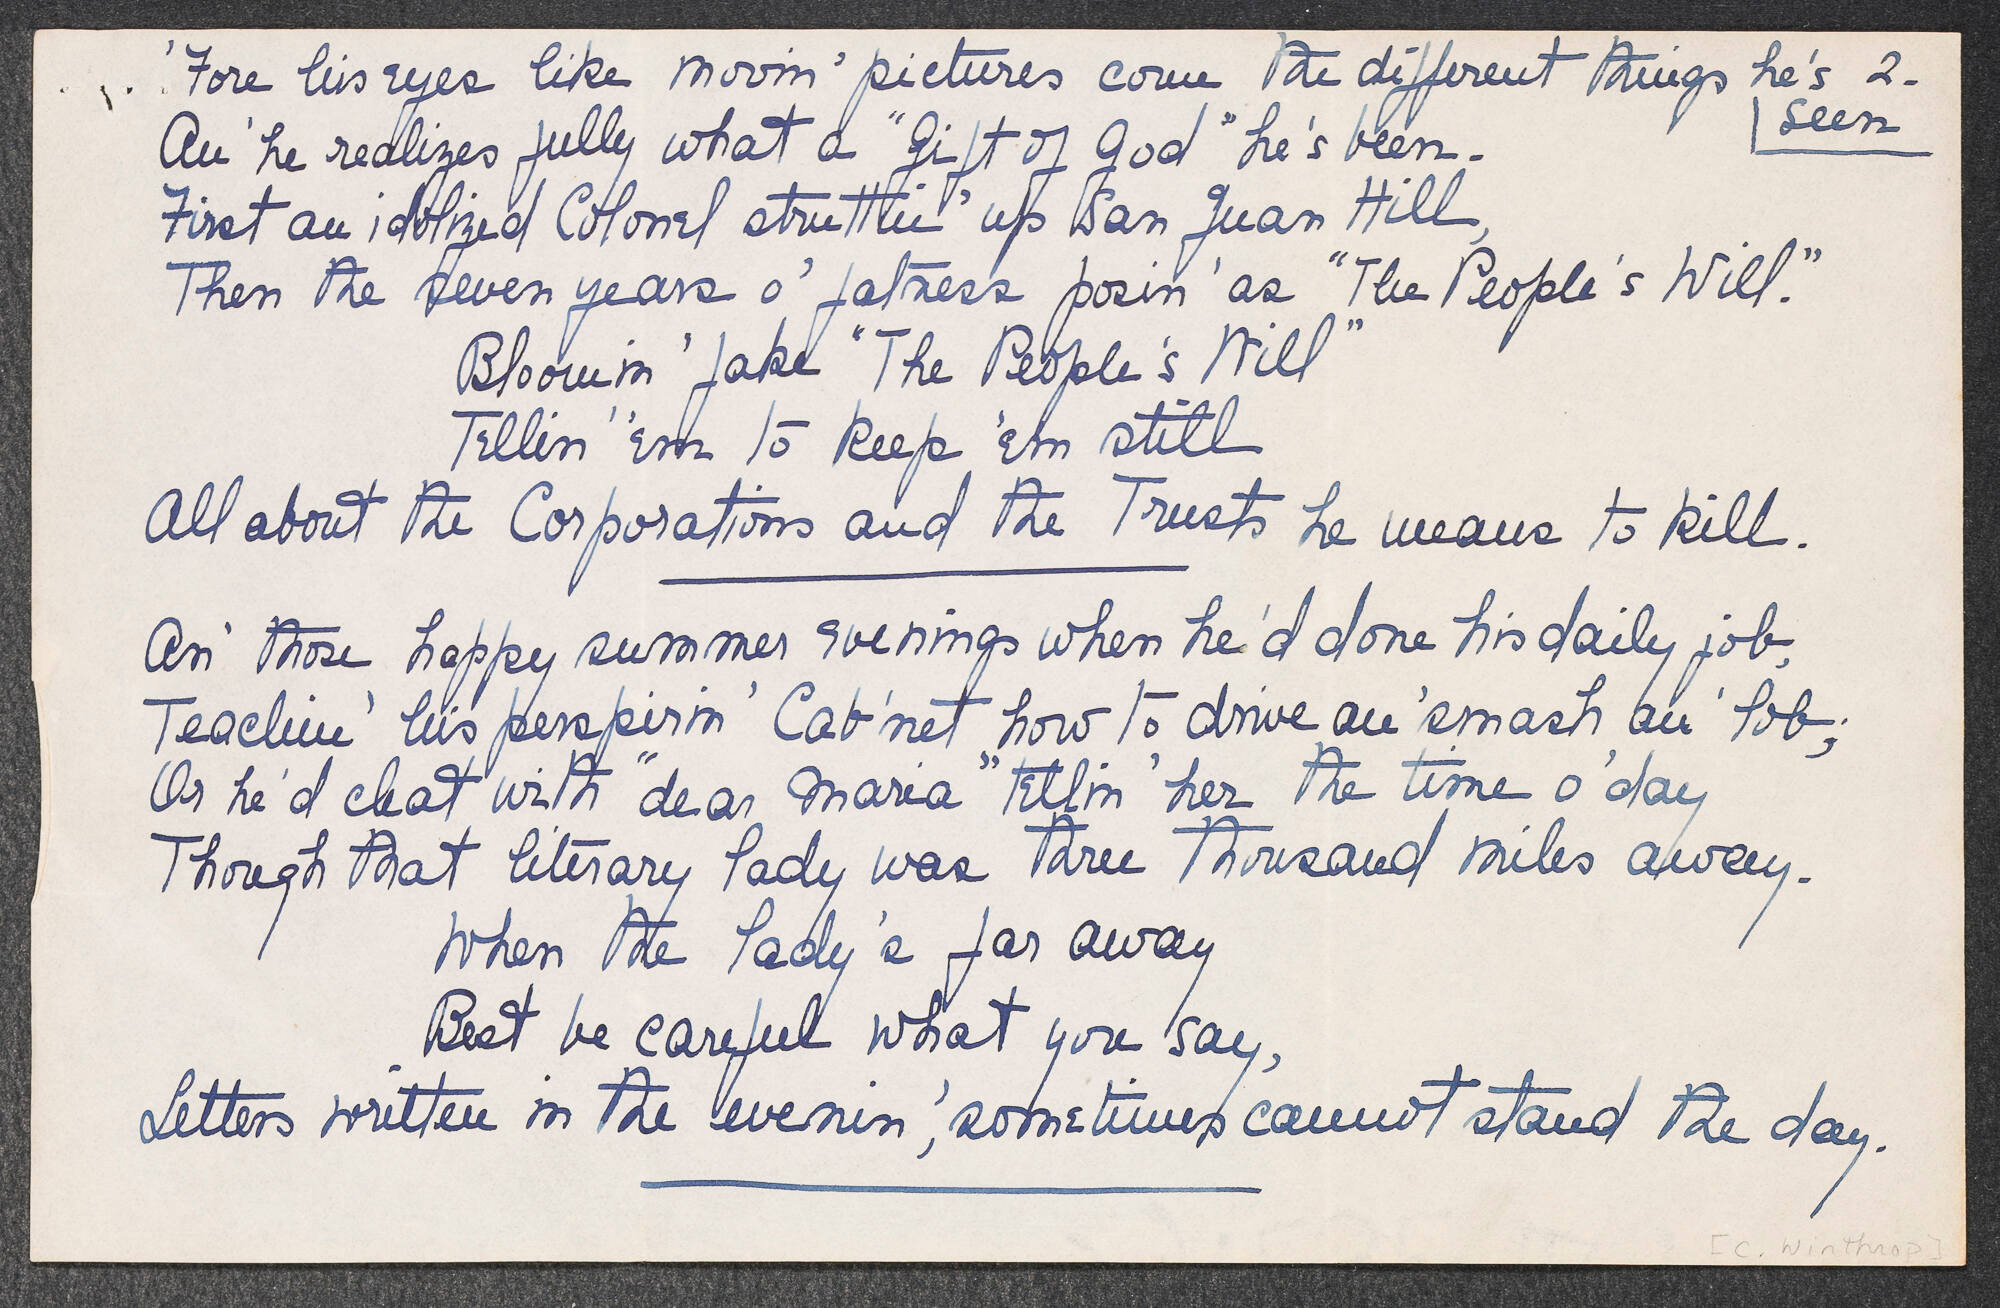 'Fore his eyes like movin' pictures come the different things he's 2-
seen
An' he realizes fully what a "Gift of God" he's been.
First an idolized Colonel struttin' up San Juan Hill,
Then the seven years o' fatness posin' as "The People's Will."
Bloomin' fake "The People's Will"
Tellin' 'em to keep 'em still
All about the Corporations and the Trusts he means to kill.
An' those happy summer evenings when he'd done his daily job,
Teachin' his perspirin' Cab'net how to drive an' smash an' lob;
Or he'd chat with "dear Maria" tellin' her the time o' day
Though that literary lady was three thousand miles away.
When the lady's far away
Best be careful what you say,
Letters written in the evenin', sometimes cannot stand the day.
[C. Winthrop]